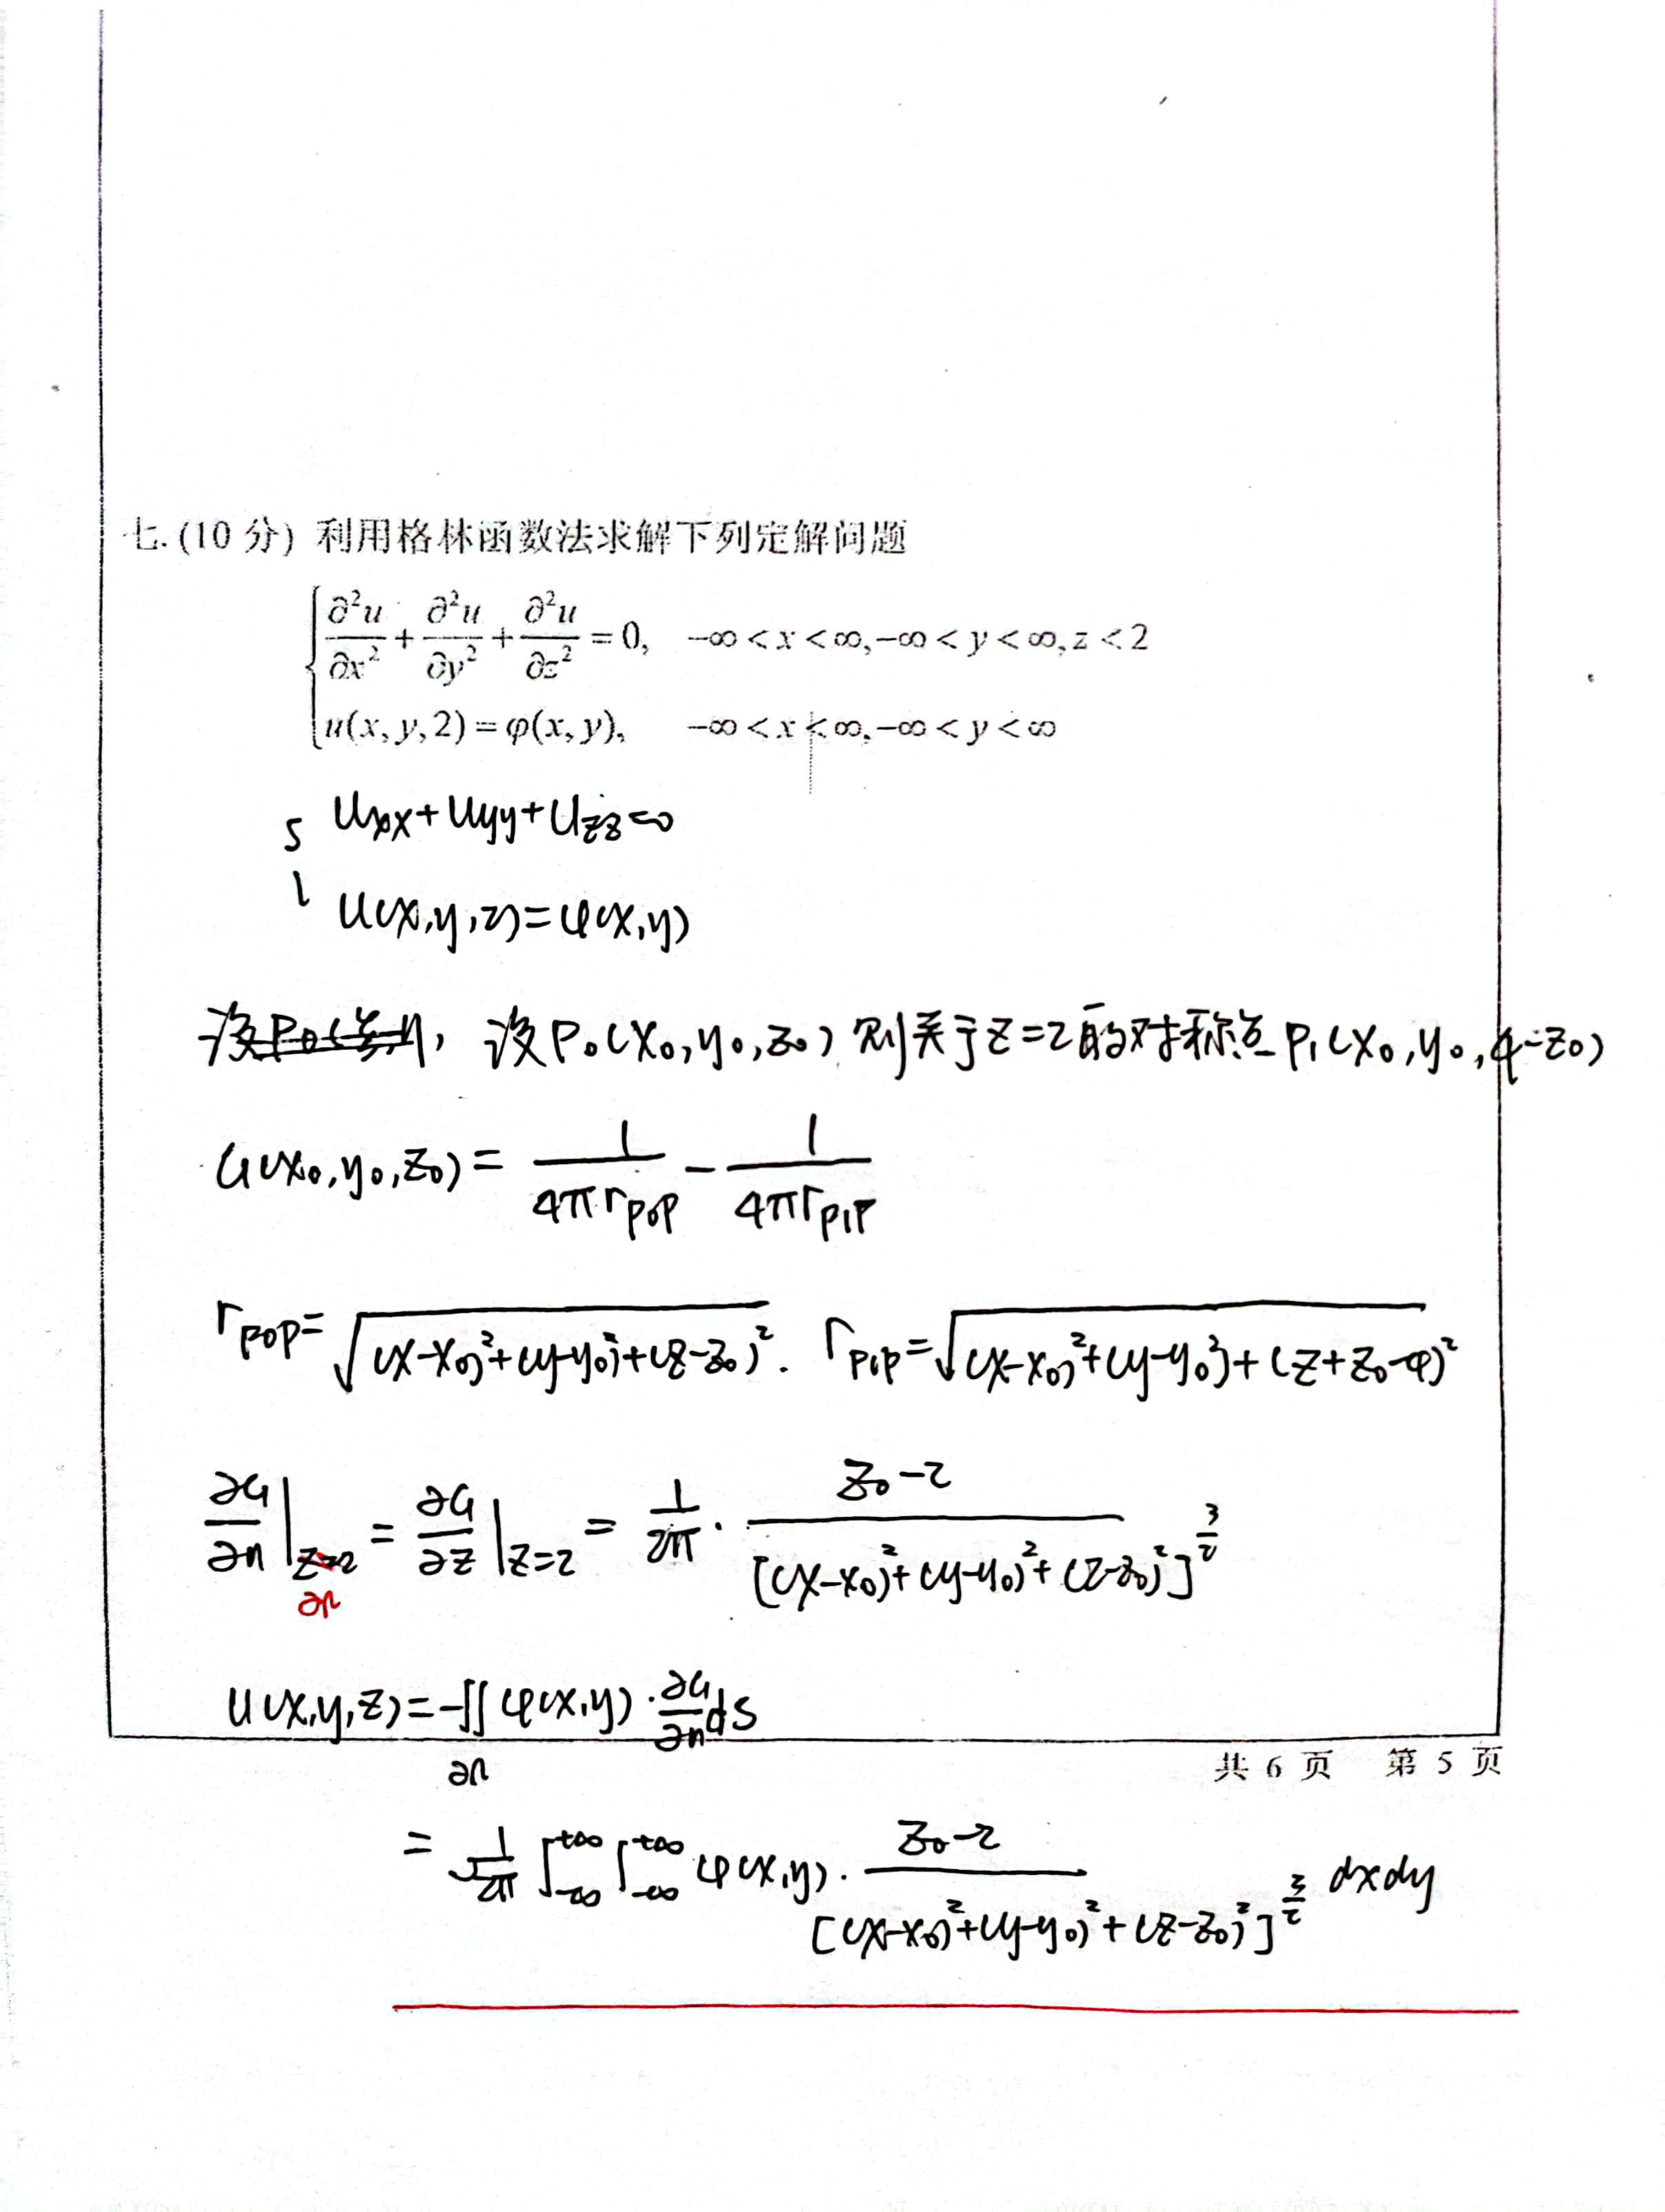 七. (10 分) 利用格林函数法求解下列定解问题
∂²u/∂x² + ∂²u/∂y² + ∂²u/∂z² = 0, -∞ < x < ∞, -∞ < y < ∞, z < 2
u(x, y, 2) = φ(x, y), -∞ < x < ∞, -∞ < y < ∞
Uxx+Uyy+Uzz=0
U(x,y,2)=φ(x,y)
设P₀(x₀,y₀,z₀) 则关于z=2的对称点P₁(x₀,y₀,4-z₀)
G(x₀,y₀,z₀) = 1/(4πr_P₀P) - 1/(4πr_P₁P)
r_P₀P = √((x-x₀)²+(y-y₀)²+(z-z₀)²). r_P₁P = √((x-x₀)²+(y-y₀)²+(z+z₀-4)²)
∂G/∂n|z=2 ∂Ω = ∂G/∂z|z=2 = 1/2π · (z₀-2)/[(x-x₀)²+(y-y₀)²+(2-z₀)²]^(3/2)
U(x,y,z) = -∬ φ(x,y)·∂G/∂n dS
∂Ω
共 6 页 第 5 页
= 1/2π ∫_-∞^+∞ ∫_-∞^+∞ φ(x,y)· (z₀-2)/[(x-x₀)²+(y-y₀)²+(z-z₀)²]^(3/2) dxdy